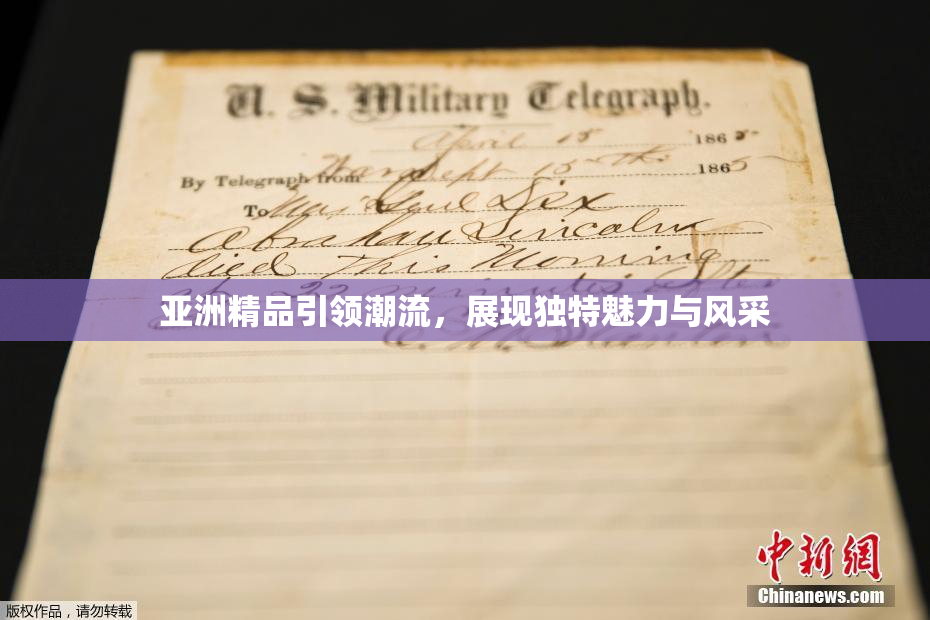 U. S. Military Telegraph.
April 15 1865
By Telegraph from War Dept 15th 1865
To Maj Genl Dix
Abraham Lincoln
died this morning
at 22 minutes after
亚洲精品引领潮流，展现独特魅力与风采
E. M. Stanton
中新网
Chinanews.com
版权作品，请勿转载